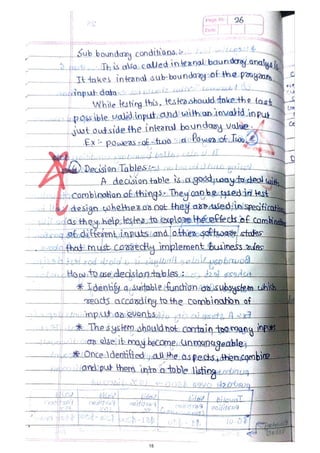 Page No. 26
Date
Sub boundary conditions :-
This is also called internal boundary analysis
It takes internal sub-boundary of the program
input data
While testing this, tester should take the last
possible valid input and with an invalid input
just outside the internal boundary value
Ex :- powers-of-two a Power of Two
④ Decision Tables :-
A decision table is a good way to deal with
combination of things. They can be used in test
design whether or not they are used in specification
as they help testers to explore the effects of combination
of different inputs and other software states
that must correctly implement business rules
How to use decision tables :
* Identify a suitable function or subsystem which
reacts according to the combination of
input or events.
* The system should not contain too many inputs
or else it may become unmanageable;
* Once Identified, all the aspects, then combine
and put them into a table listing
18